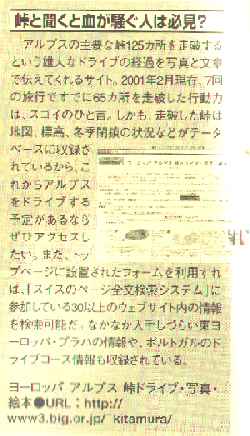 峠と聞くと血が騒ぐ人は必見？
アルプスの主要な峠125カ所を走破する
という雄大なドライブの経過を写真と文章
で伝えてくれるサイト。2001年2月現在、7回
の旅行ですでに65カ所を走破した行動力
は、スゴイのひと言。しかも、走破した峠は
地図、標高、冬季閉鎖の状況などがデータ
ベースに収録さ
れているから、こ
れからアルプス
をドライブする
予定があるなら
ぜひアクセスし
たい。また、トッ
プページに設置されたフォームを利用すれ
ば、「スイスのページ全文検索システム」に
参加している30以上のウェブサイト内の情報
を検索可能だ。なかなか入手しづらい東ヨ
ーロッパ・プラハの情報や、ポルトガルのド
ライブコース情報も収録されている。
ヨーロッパ アルプス 峠ドライブ・写真・
絵本●URL：http://
www3.big.or.jp/ kitamura/